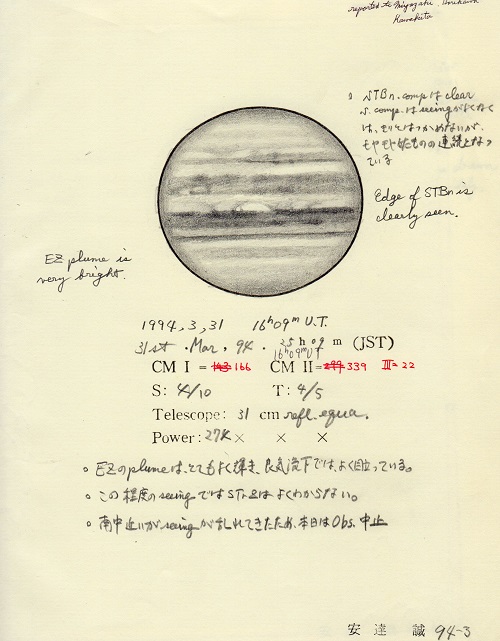 reported to Miyazaki, Horikawa
Kawakita
STBn. comp は clear
S. comp. は seeing がよくなく
は、 つかめないが、
モヤモヤ したものの連続となっ
ている
Edge of STBn is
clearly seen.
EZ plume is
very bright.
1994, 3, 31 16h09m U.T.
31st ・Mar, 94 ・ 25h09m (JST)
16h09m UT
CM I = 143 166 CM II = 299 339 III= 22
S: 4/10 T: 4/5
Telescope: 31 cm refl. equa.
Power: 27X × × ×
。EZのplumeは、とてもよく輝き、良気流下では、よく目立っている。
。この程度のseeingではSTrZはよくわからない。
。南中近いがseeingが乱れてきたため、本日はObs. 中止
安達 誠 94-3